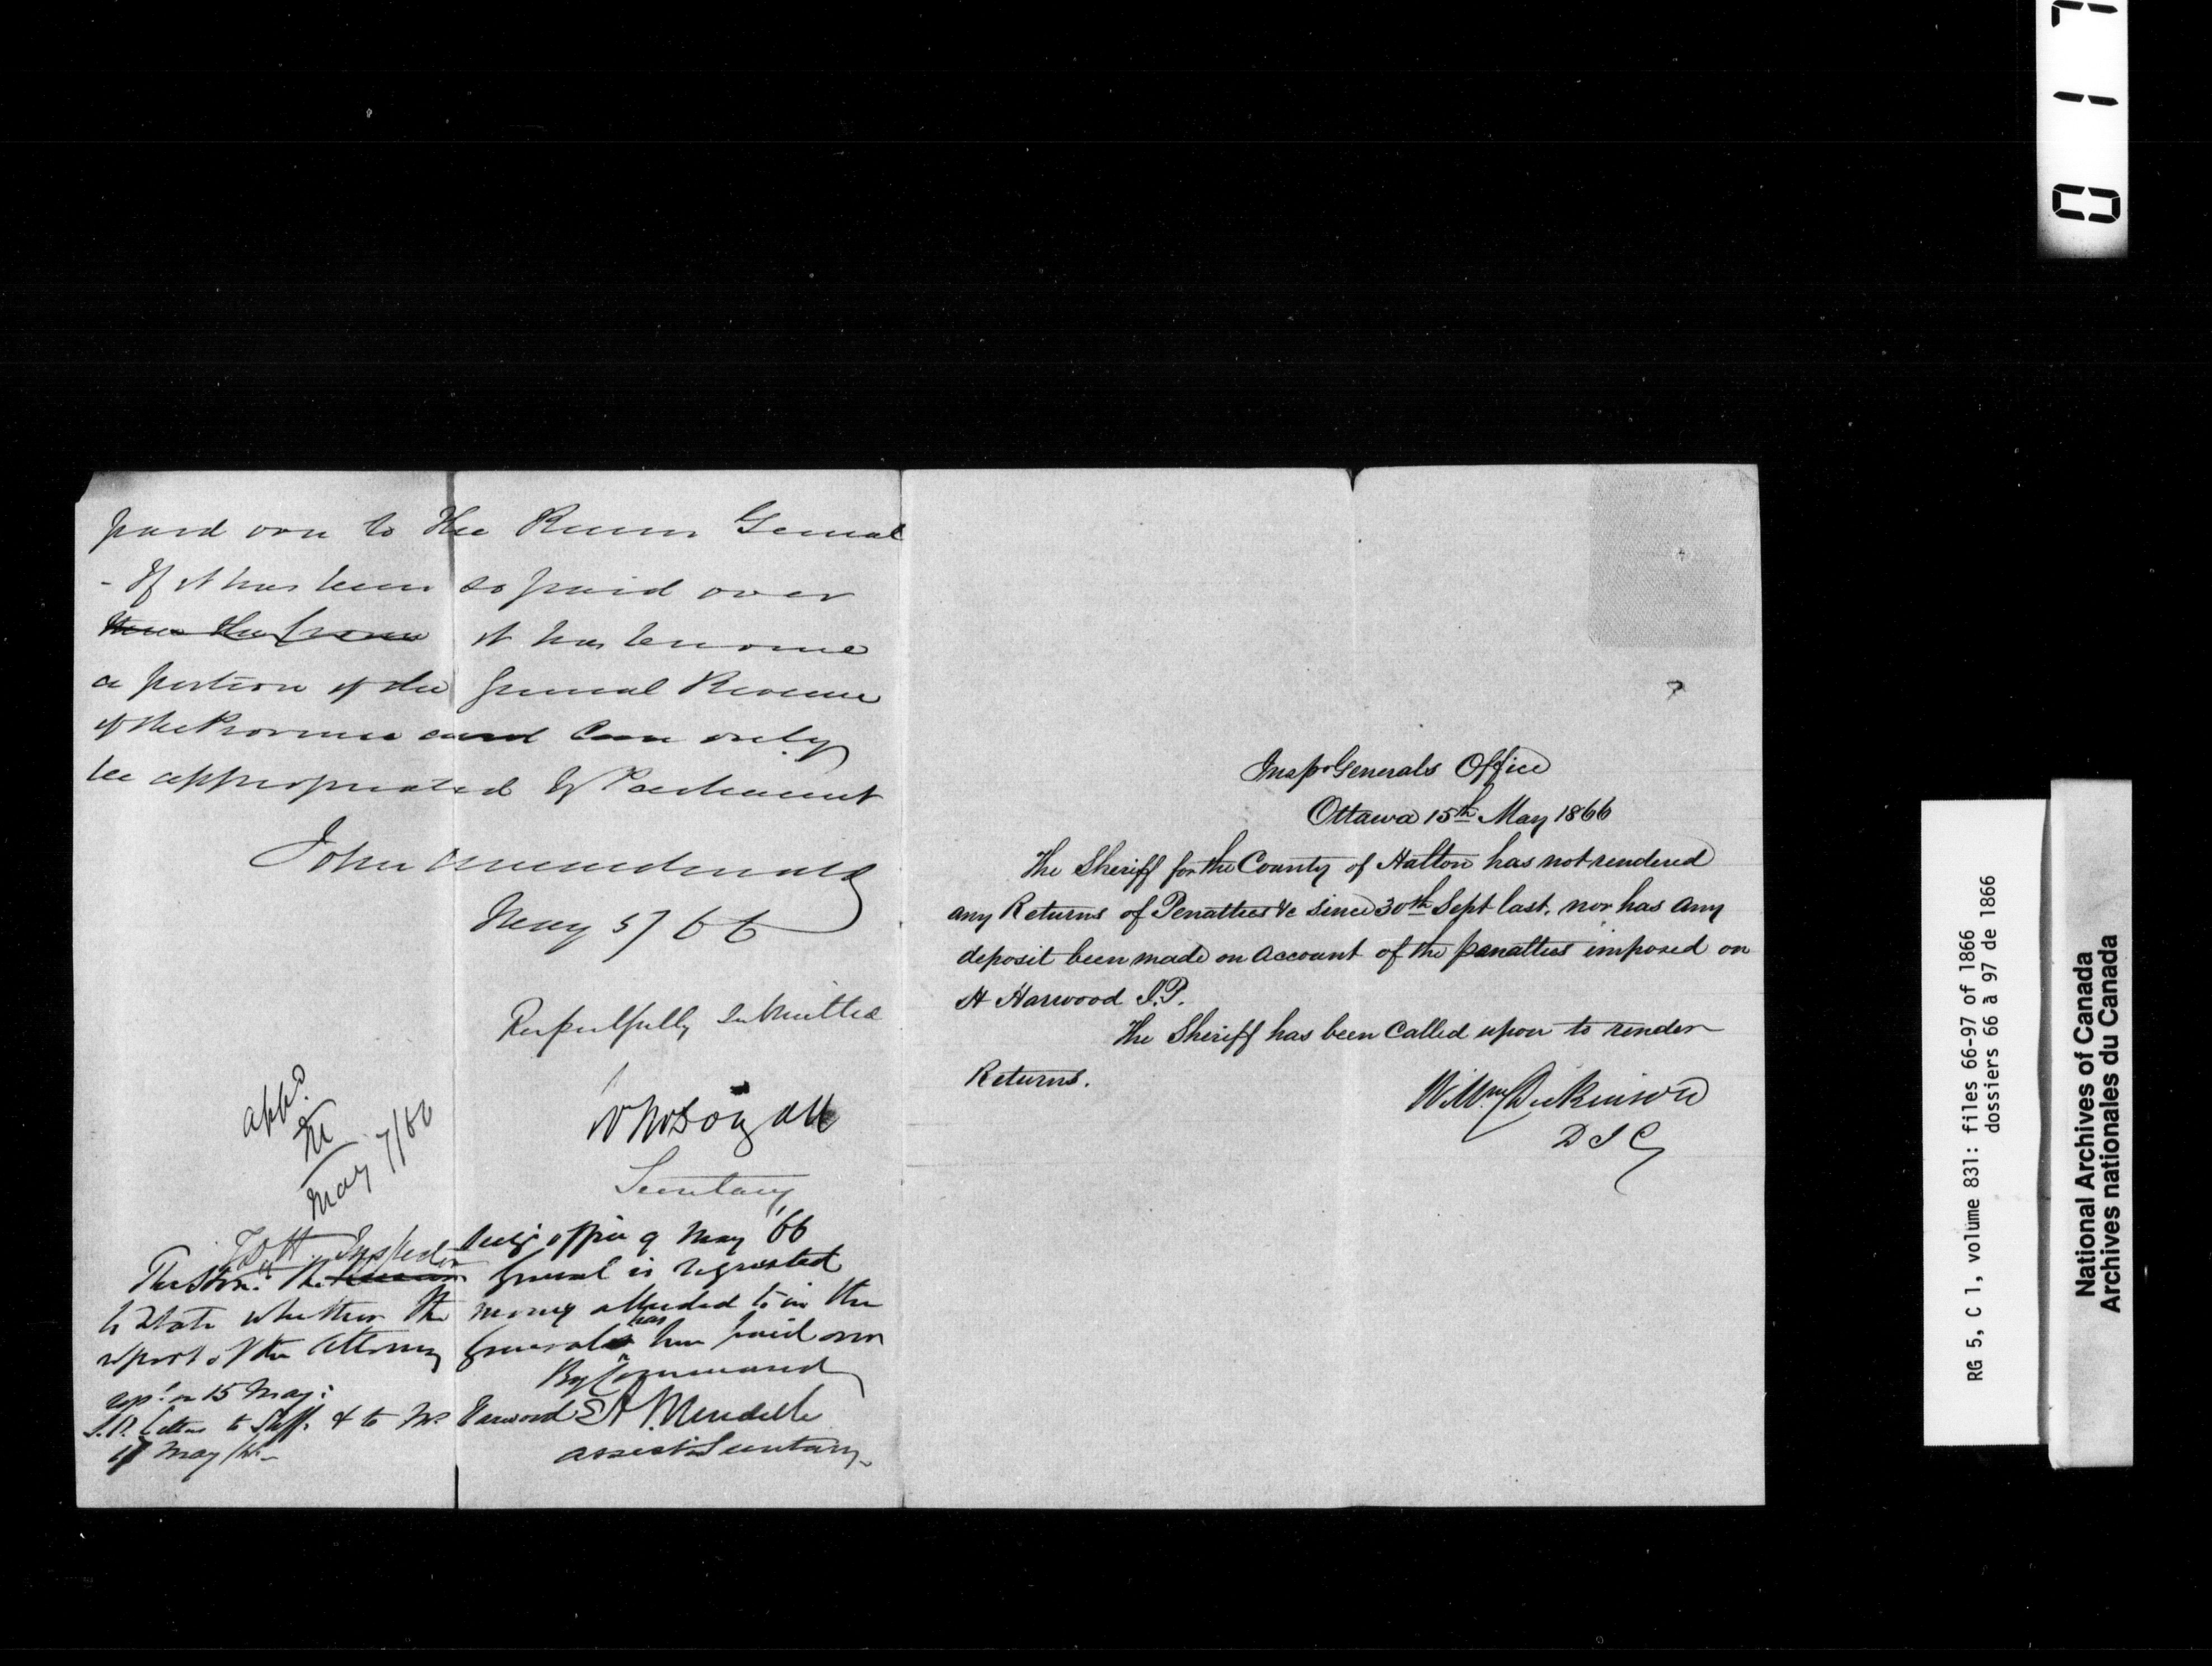 paid over to the Receiver General
- If it has been so paid over
it has become
a portion of the general Revenue
of the Province and can only
be appropriated by Parliament
John A Macdonald
May 5/66
Respectfully submitted
W McDougall
Secretary
appd.
M
May 7/66
Secy's office 9 May '66
Inspector
The Honble. the General is requested
to state whether the money alluded to in the
report of the Attorney General has been paid over
By Command
E A Meredith
assist. Secretary
rep. on 15 May:
Letters to Shff. & to Mr Harwood
17 May
Insp. Generals Office
Ottawa 15th May 1866
The Sheriff for the County of Halton has not rendered
any Returns of Penalties &c since 30th Sept last, nor has any
deposit been made on account of the penalties imposed on
H Harwood J.P.
The Sheriff has been called upon to render
Returns.
Wm Dickinson
D I G
0 1 7
RG 5, C 1, volume 831: files 66-97 of 1866
dossiers 66 à 97 de 1866
National Archives of Canada
Archives nationales du Canada